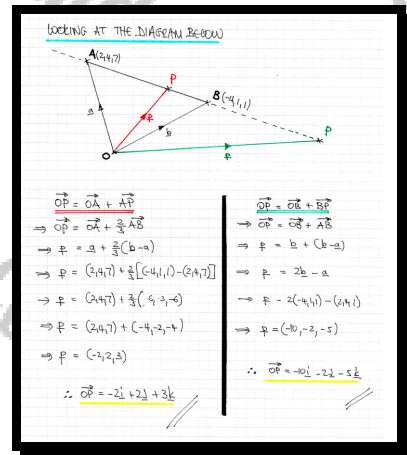 LOOKING AT THE DIAGRAM BELOW
A(2,4,7)
P
B(-4,1,1)
P
a
p
b
O
p
OP = OA + AP
⇒ OP = OA + 2/3 AB
⇒ p = a + 2/3(b-a)
⇒ p = (2,4,7) + 2/3[(-4,1,1)-(2,4,7)]
→ p = (2,4,7) + 2/3(-6,-3,-6)
⇒ p = (2,4,7) + (-4,-2,-4)
⇒ p = (-2,2,3)
∴ OP = -2i + 2j + 3k
OP = OB + BP
⇒ OP = OB + AB
⇒ p = b + (b-a)
⇒ p = 2b - a
⇒ p = 2(-4,1,1) - (2,4,7)
⇒ p = (-10,-2,-5)
∴ OP = -10i - 2j - 5k